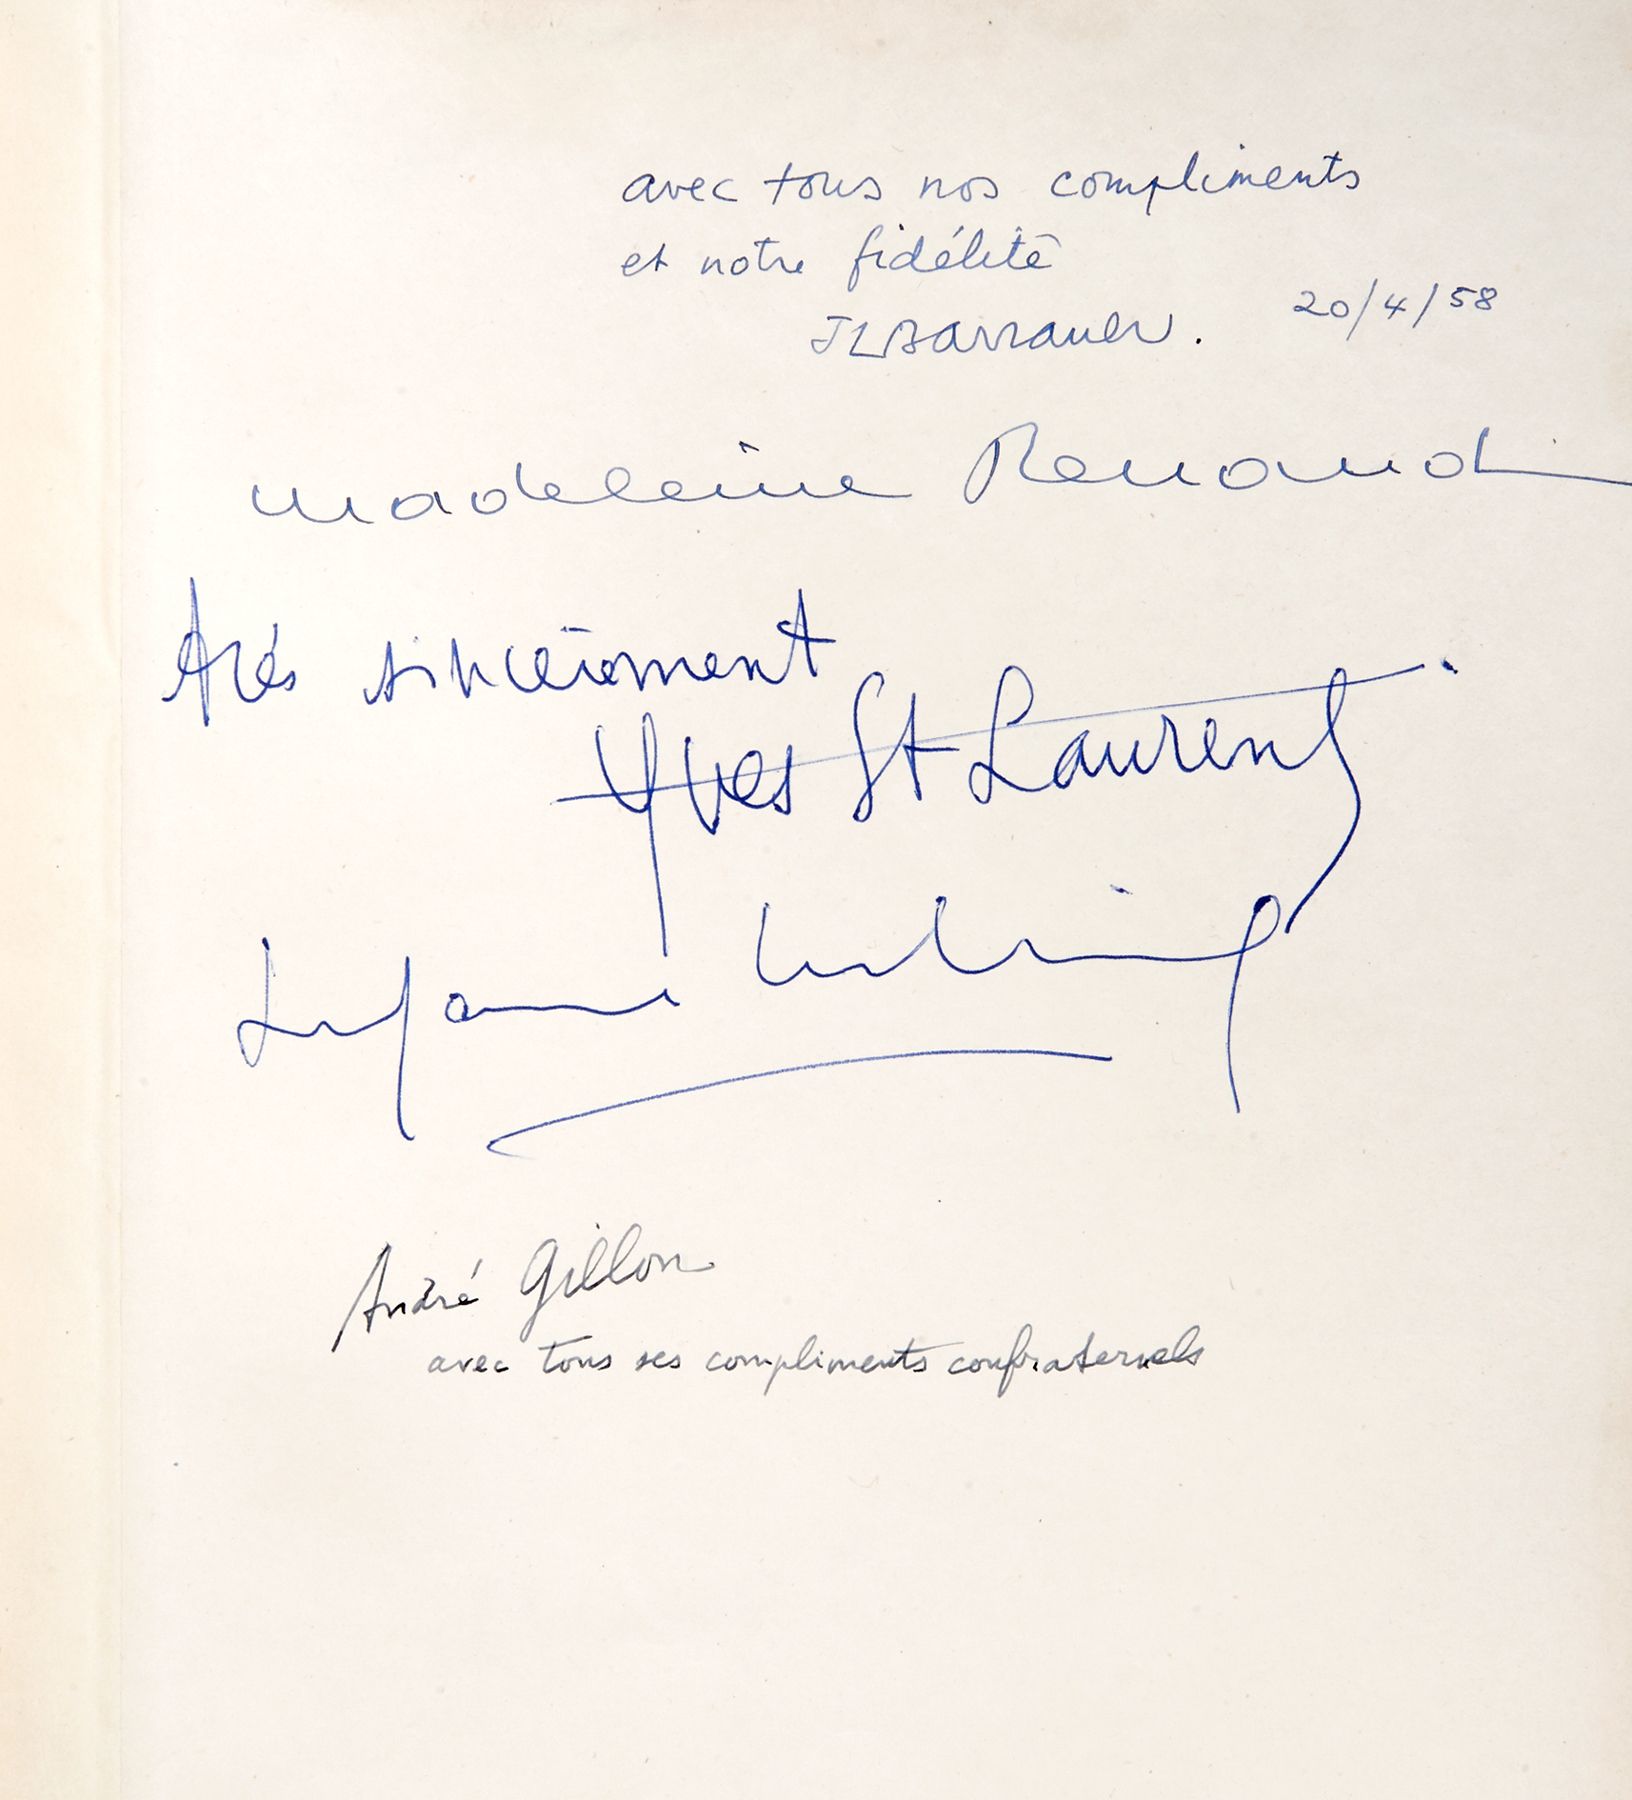 avec tous nos compliments
et notre fidélité
JLBarrault.
20/4/58
Madeleine Renaud
très sincèrement
Yves St Laurent
André Gillon
avec tous ses compliments confraternels